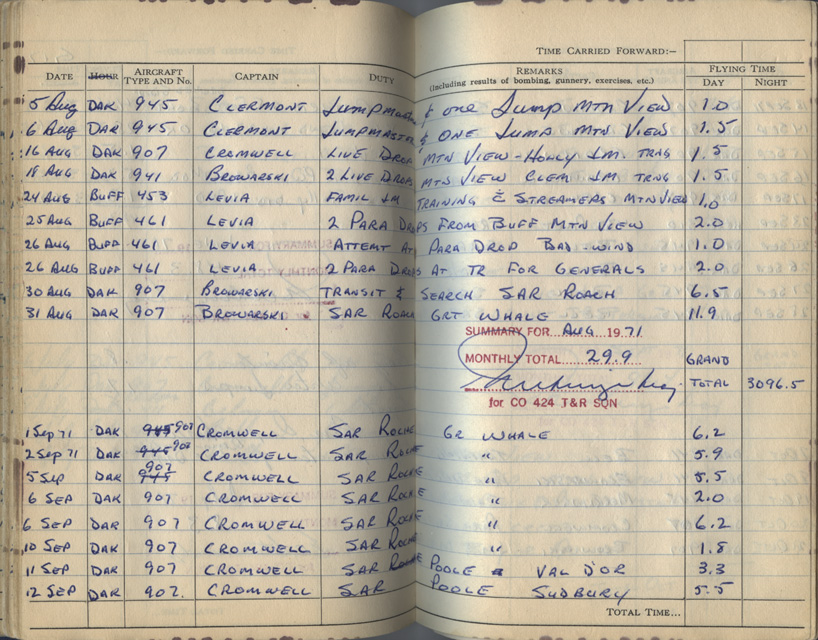 TIME CARRIED FORWARD:–
DATE HOUR AIRCRAFT TYPE AND NO. CAPTAIN DUTY REMARKS (Including results of bombing, gunnery, exercises, etc.) FLYING TIME DAY NIGHT
5 Aug DAK 945 CLERMONT JUMPMASTER & ONE JUMP MTN VIEW 1.0
6 Aug DAK 945 CLERMONT JUMPMASTER & ONE JUMP MTN VIEW 1.5
16 AUG DAK 907 CROMWELL LIVE DROP MTN VIEW - HOLLY JM. TRNG 1.5
18 AUG DAK 941 BROWARSKI 2 LIVE DROPS MTN VIEW CLEM JM TRNG 1.5
24 AUG BUFF 453 LEVIA FAMIL JM TRAINING & STREAMERS MTN VIEW 1.0
25 AUG BUFF 461 LEVIA 2 PARA DROPS FROM BUFF MTN VIEW 2.0
26 AUG BUFF 461 LEVIA ATTEMT AT PARA DROP BAD-WIND 1.0
26 AUG BUFF 461 LEVIA 2 PARA DROPS AT TR FOR GENERALS 2.0
30 AUG DAK 907 BROWARSKI TRANSIT & SEARCH SAR ROACH 6.5
31 AUG DAK 907 BROWARSKI SAR ROACH GRT WHALE 11.9
SUMMARY FOR AUG 1971
MONTHLY TOTAL 29.9 GRAND
TOTAL 3096.5
for CO 424 T&R SQN
1 Sep 71 DAK 945 907 CROMWELL SAR ROCHE GR WHALE 6.2
2 Sep 71 DAK 945 907 CROMWELL SAR ROCHE " 5.9
5 Sep DAK 907 945 CROMWELL SAR ROCHE " 5.5
6 SEP DAK 907 CROMWELL SAR ROCHE " 2.0
6 SEP DAK 907 CROMWELL SAR ROCHE " 6.2
10 SEP DAK 907 CROMWELL SAR ROCHE " 1.8
11 SEP DAK 907 CROMWELL SAR ROCHE POOLE VAL D'OR 3.3
12 SEP DAK 907. CROMWELL SAR POOLE SUDBURY 5.5
TOTAL TIME...